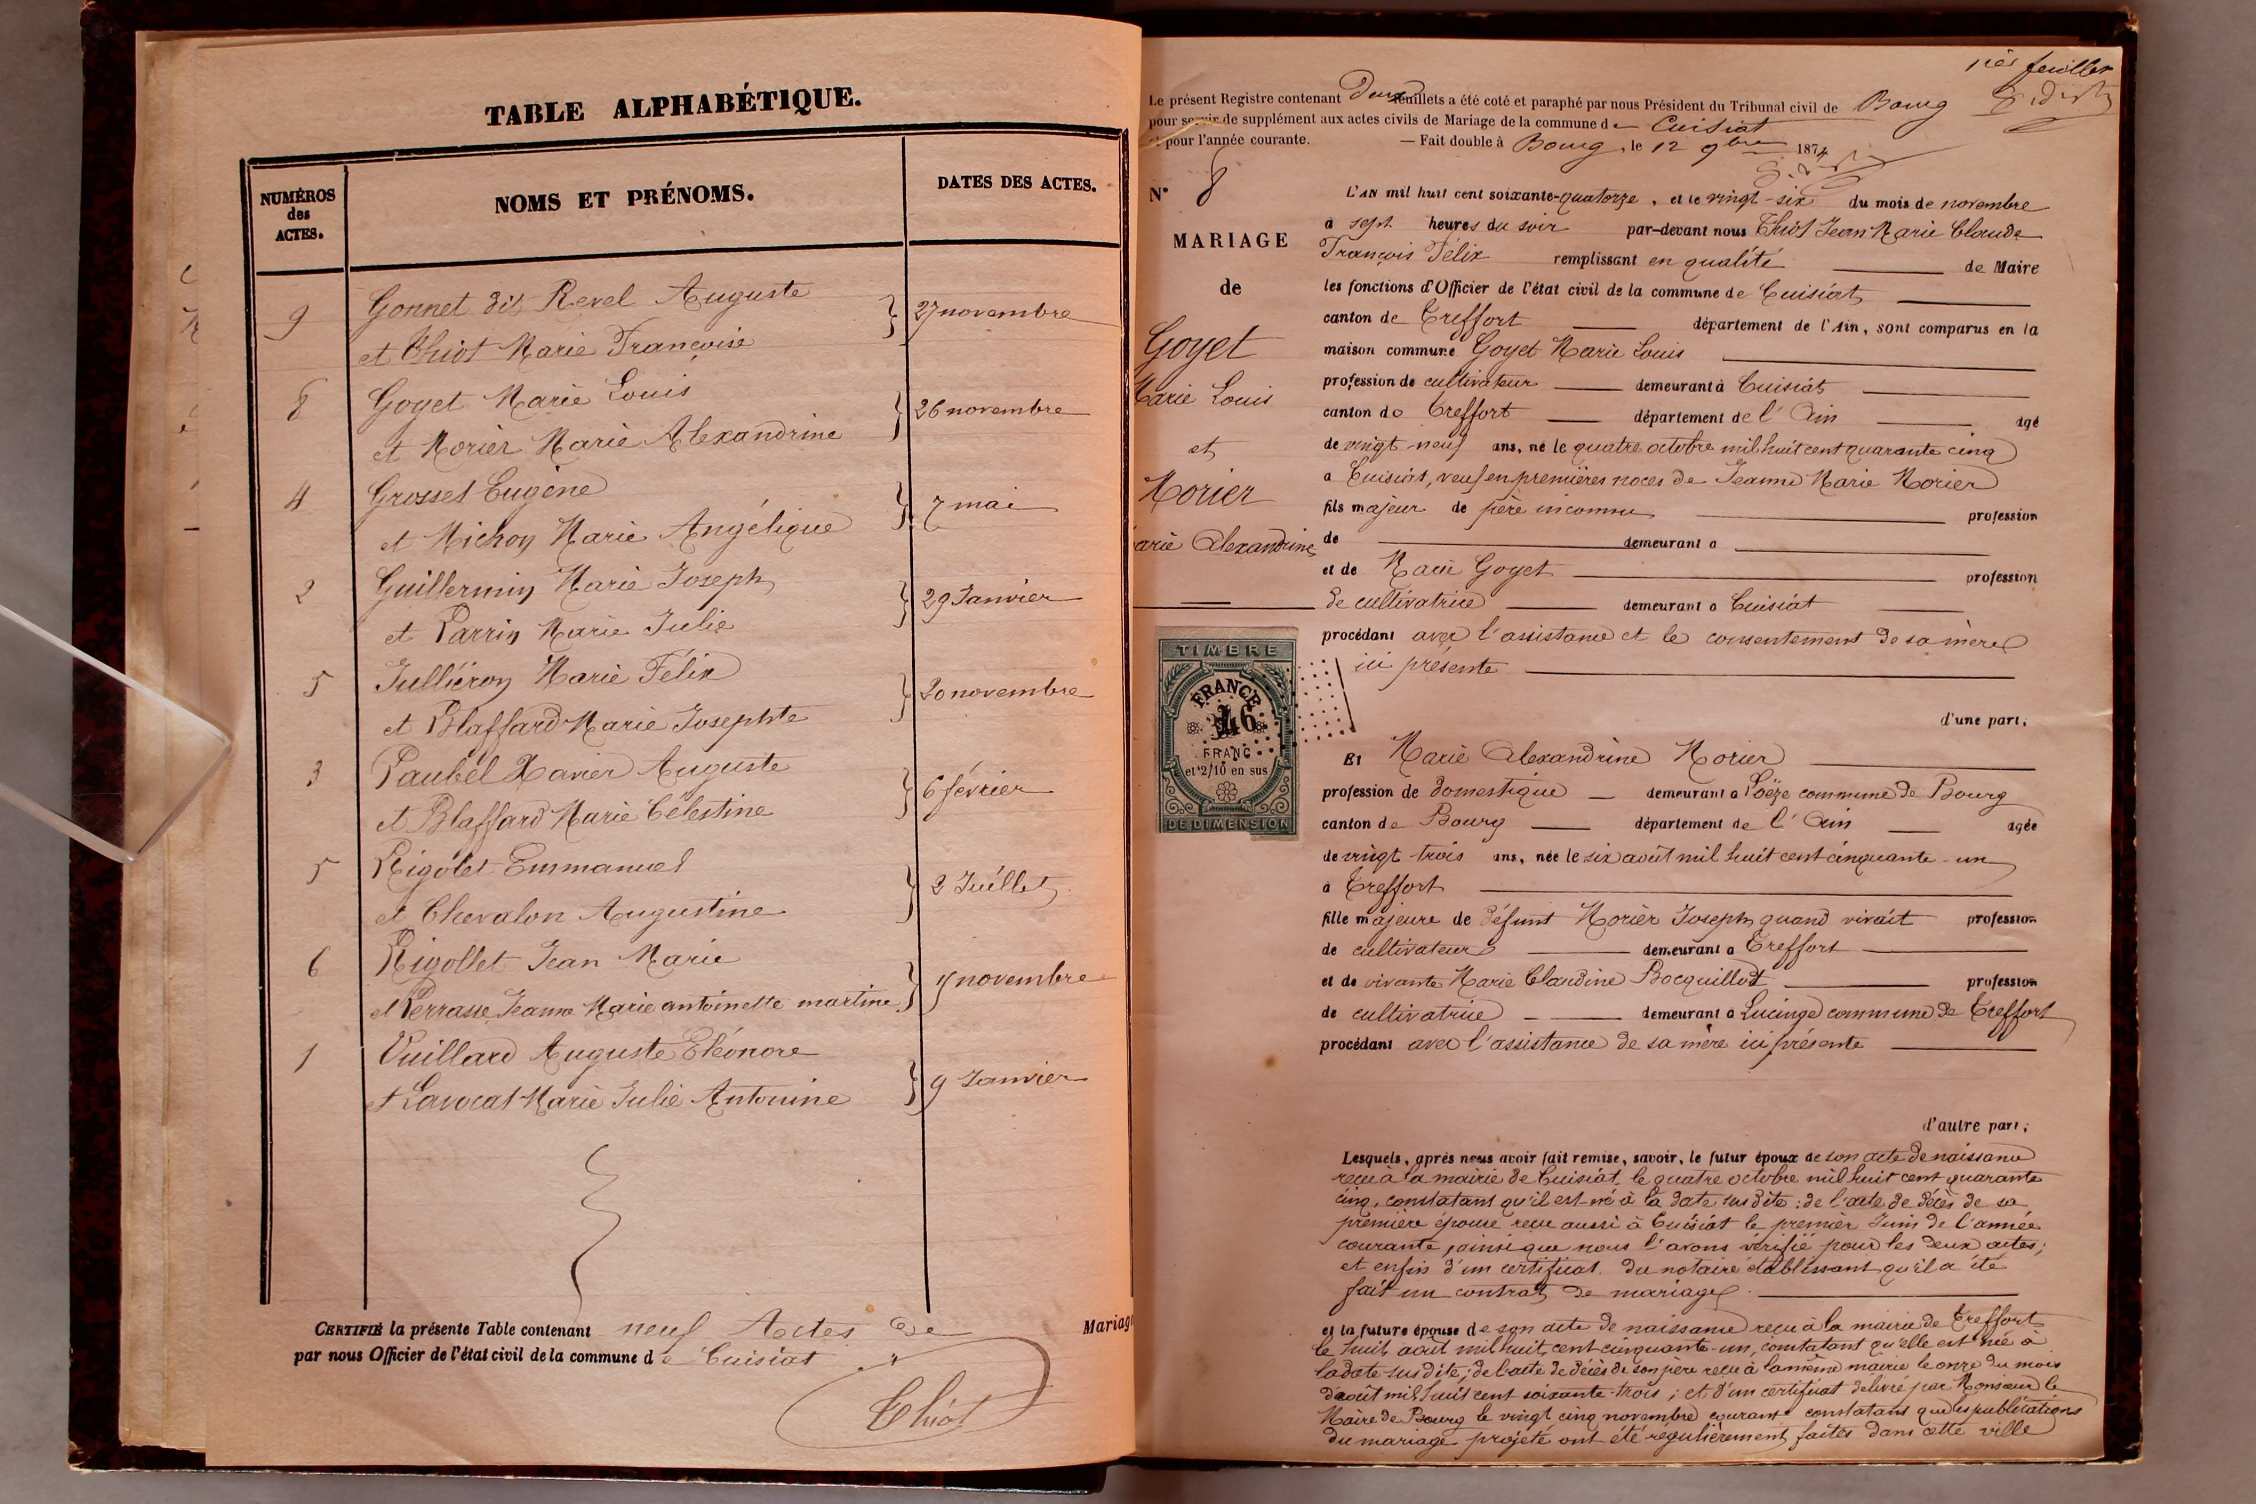 TABLE ALPHABÉTIQUE.
NUMÉROS
des
ACTES.
NOMS ET PRÉNOMS.
DATES DES ACTES.
9 Gonnet dit Revel Auguste
et Thiot Marie Françoise } 27 novembre
8 Goyet Marie Louis
et Morier Marie Alexandrine } 26 novembre
4 Grosset Eugène
et Michon Marie Angélique } 7 mai
2 Guillermin Marie Joseph
et Parrin Marie Julie } 29 Janvier
5 Julliéron Marie Félix
et Blaffard Marie Josephte } 20 novembre
3 Paubel Xavier Auguste
et Blaffard Marie Célestine } 6 février
5 Rigolet Emmanuel
et Chevalon Augustine } 2 Juillet
6 Rigollet Jean Marie
et Perrasse Jeanne Marie antoinette martine } novembre
1 Vuillard Auguste Eléonore
et Lavocat Marie Julie Antonine } 9 Janvier
CERTIFIÉ la présente Table contenant neuf Actes de Mariage
par nous Officier de l'état civil de la commune de Cuisiat
Thiot
1ier feuillet
Le présent Registre contenant Deux feuillets a été coté et paraphé par nous Président du Tribunal civil de Bourg
pour servir de supplément aux actes civils de Mariage de la commune de Cuisiat
et pour l'année courante. — Fait double à Bourg, le 12 9bre 1874
N° 8
MARIAGE
de
Goyet
Marie Louis
et
Morier
Marie Alexandrine
TIMBRE
FRANCE
46
FRANC
et 2/10 en sus
DE DIMENSION
L'AN mil huit cent soixante-quatorze, et le vingt-six du mois de novembre
à sept heures du soir par-devant nous Thiot Jean Marie Claude
François Félix remplissant en qualité de Maire
les fonctions d'Officier de l'état civil de la commune de Cuisiat
canton de Treffort département de l'Ain, sont comparus en la
maison commune Goyet Marie Louis
profession de cultivateur demeurant à Cuisiat
canton de Treffort département de l'Ain agé
de vingt neuf ans, né le quatre octobre mil huit cent quarante cinq
a Cuisiat, veuf en premières noces de Jeanne Marie Morier
fils majeur de père inconnu profession
de demeurant a
et de Marie Goyet profession
de cultivatrice demeurant a Cuisiat
procédant avec l'assistance et le consentement de sa mère
ici présente
d'une part.
Et Marie Alexandrine Morier
profession de domestique demeurant a Loëze commune de Bourg
canton de Bourg département de l'Ain agée
de vingt trois ans, née le six août mil huit cent cinquante-un
à Treffort
fille majeure de défunt Morier Joseph quand vivait profession
de cultivateur demeurant a Treffort
et de vivante Marie Claudine Bocquillod profession
de cultivatrice demeurant à Lucinge commune de Treffort
procédant avec l'assistance de sa mère ici présente
d'autre part;
Lesquels, après nous avoir fait remise, savoir, le futur époux de son acte de naissance
reçu à la mairie de Cuisiat, le quatre octobre mil huit cent quarante
cinq, constatant qu'il est né à la date sus dite; de l'acte de décès de sa
première épouse reçu aussi à Cuisiat le premier Juin de l'année
courante, ainsi que nous l'avons vérifié pour les deux actes;
et enfin d'un certificat du notaire établissant qu'il a été
fait un contrat de mariage
et la future épouse de son acte de naissance reçu à la mairie de Treffort
le huit août mil huit cent cinquante-un, constatant qu'elle est née à
la date sus dite; de l'acte de décès de son père reçu à la même mairie le onze du mois
d'août mil huit cent soixante-trois; et d'un certificat délivré par Monsieur le
Maire de Bourg le vingt cinq novembre courant constatant que les publications
du mariage projeté ont été regulièrement faites dans cette ville